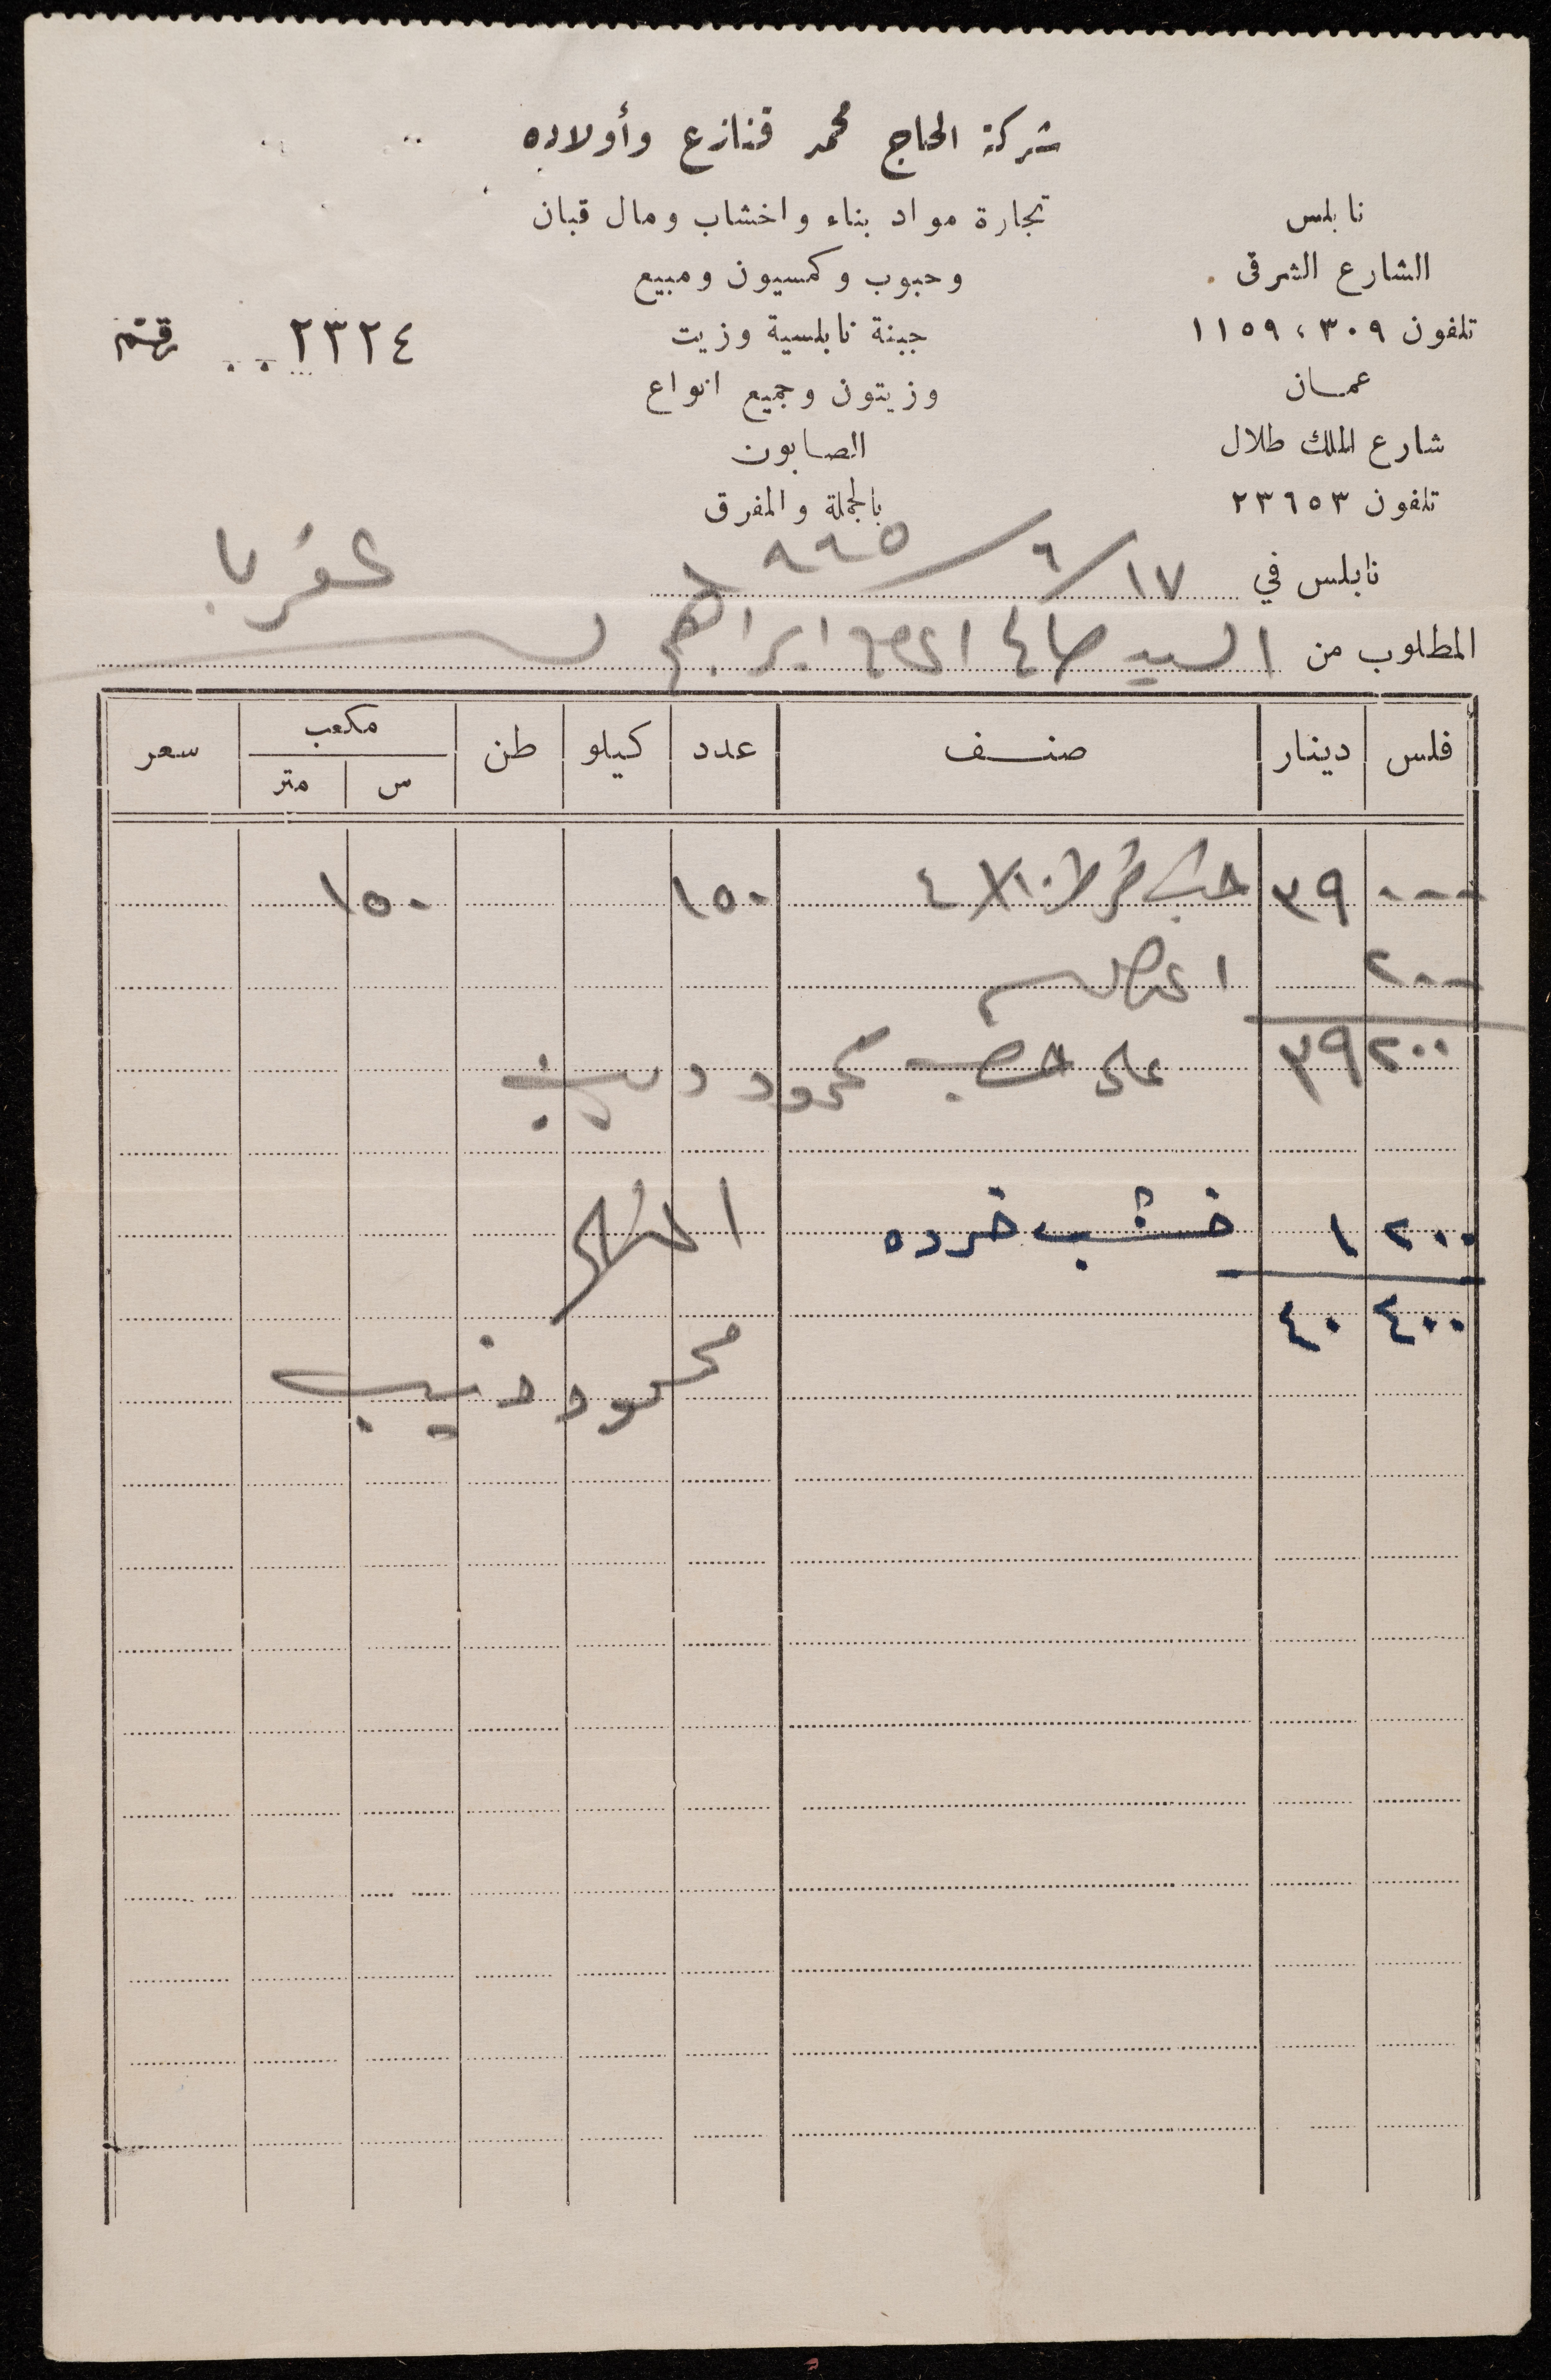 شركة الحاج محمد قنازع وأولاده
تجارة مواد بناء واخشاب ومال قبان
وحبوب وكمسيون ومبيع
جبنة نابلسية وزيت
وزيتون وجميع انواع
الصابون
بالجملة والمفرق
نابلس
الشارع الشرقي
تلفون ٣٠٩ ، ١١٥٩
عمان
شارع الملك طلال
تلفون ٢٣٦٥٣
رقم ٢٣٢٤
نابلس في ١٧/٦/٩٦٥
عقربا
المطلوب من السيد صالح ابراهيم
فلس دينار صنف عدد كيلو طن مكعب سعر
س متر
٠٠٠ ٣٩ ١٠×٤ ١٥٠ ١٥٠
٢٠٠
٢٠٠ ٣٩ على حساب محمود ديب
٢٠٠ ١ خشب خرده
٤٠٠ ٤٠
محمود ذيب